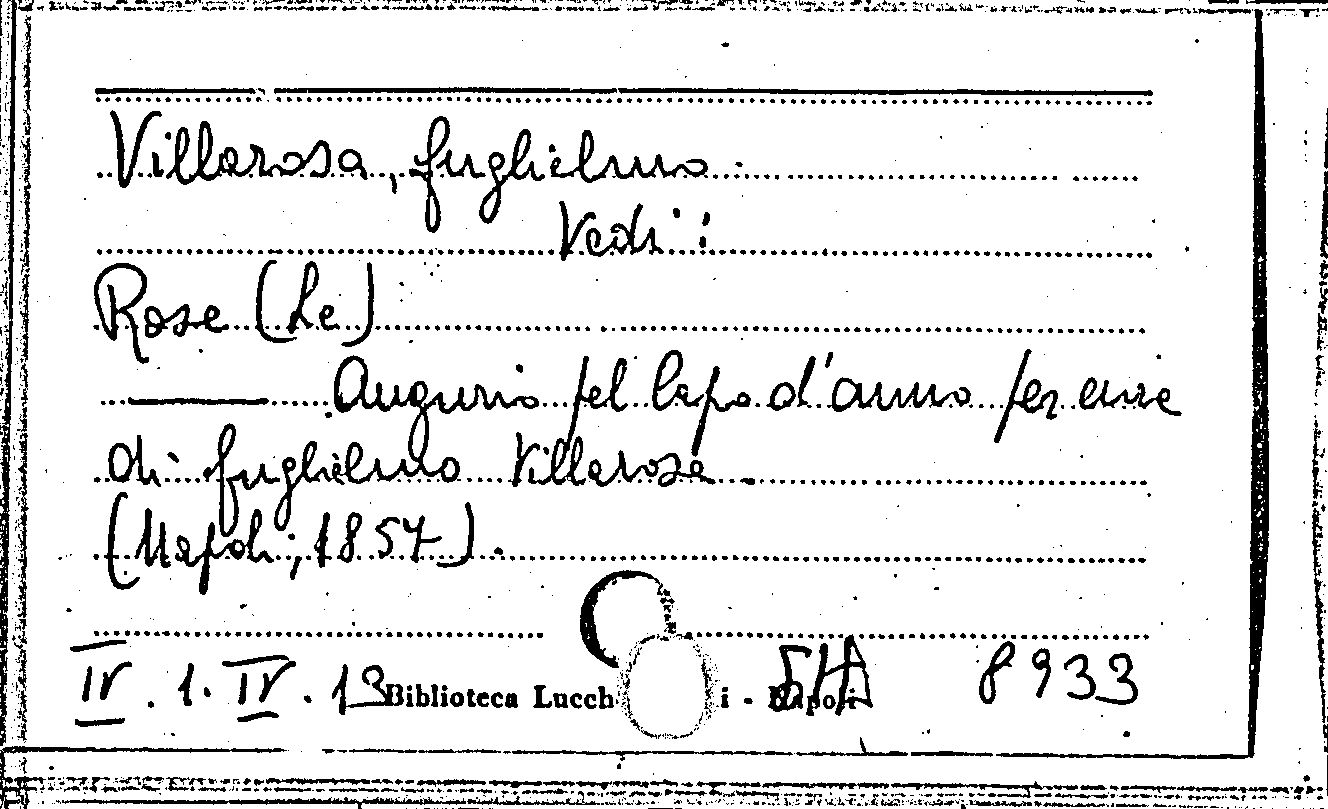 Villarosa, Guglielmo.
Vedi:
Rose (Le)
Augurio pel Capo d'anno per cura
di Guglielmo Villarosa.
(Napoli, 1857).
IV. 1. IV. 13 8933
Biblioteca Lucch i - Napoli